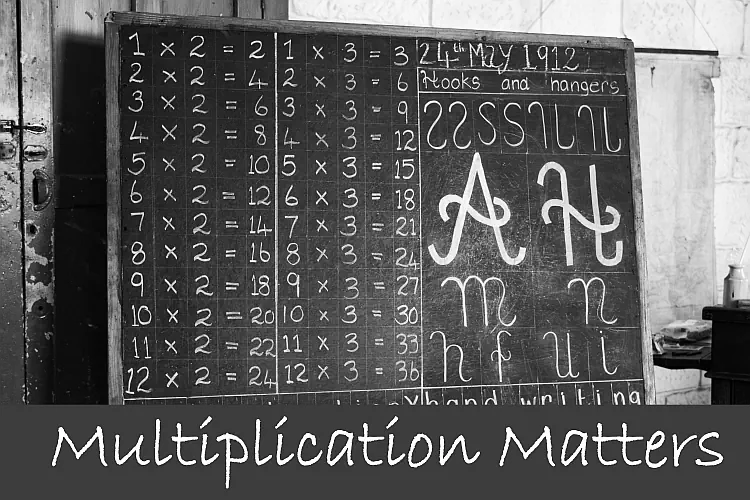 1 x 2 = 2
2 x 2 = 4
3 x 2 = 6
4 x 2 = 8
5 x 2 = 10
6 x 2 = 12
7 x 2 = 14
8 x 2 = 16
9 x 2 = 18
10 x 2 = 20
11 x 2 = 22
12 x 2 = 24
1 x 3 = 3
2 x 3 = 6
3 x 3 = 9
4 x 3 = 12
5 x 3 = 15
6 x 3 = 18
7 x 3 = 21
8 x 3 = 24
9 x 3 = 27
10 x 3 = 30
11 x 3 = 33
12 x 3 = 36
24th MAY 1912
Hooks and hangers
A H
m n
h f u i
hand writing
Multiplication Matters